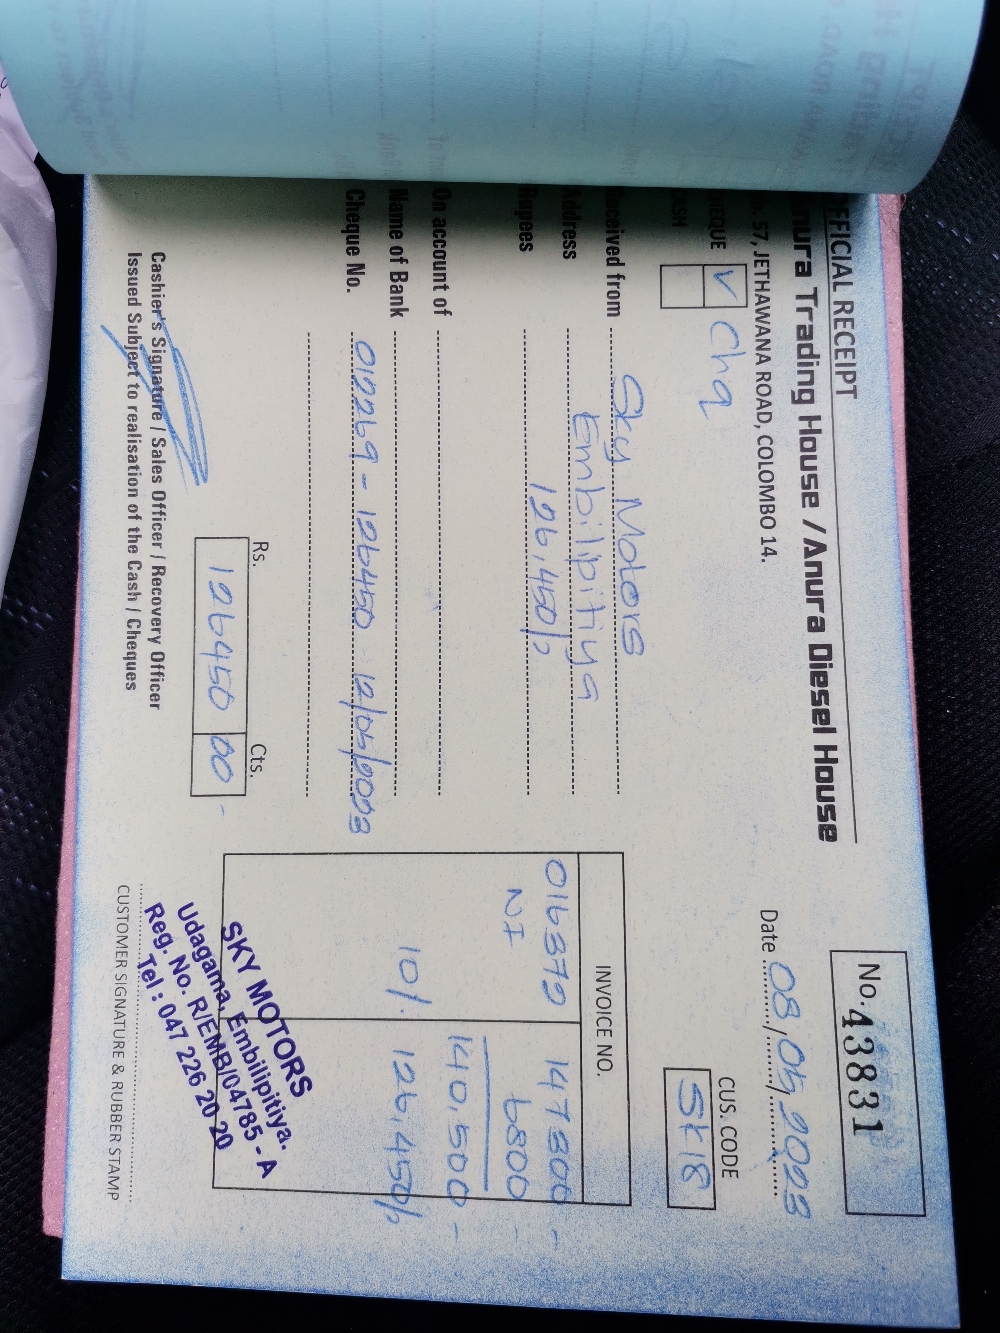 OFFICIAL RECEIPT
Anura Trading House / Anura Diesel House
No. 57, JETHAWANA ROAD, COLOMBO 14.
No. 43831
Date 08/05/2023
CHEQUE V Chq
CASH
CUS. CODE
SK18
Received from Sky Motors
Address Embilipitiya
Rupees 126,450/=
On account of
Name of Bank
Cheque No. 012269 - 126450 12/05/2023
INVOICE NO.
016370 147300 -
NI 6800 -
140,500 -
10% 126,450/=
Rs. Cts.
126450 00 -
Cashier's Signature / Sales Officer / Recovery Officer
Issued Subject to realisation of the Cash / Cheques
SKY MOTORS
Udagama, Embilipitiya.
Reg. No. R/EMB/04785 - A
Tel : 047 226 20 20
CUSTOMER SIGNATURE & RUBBER STAMP